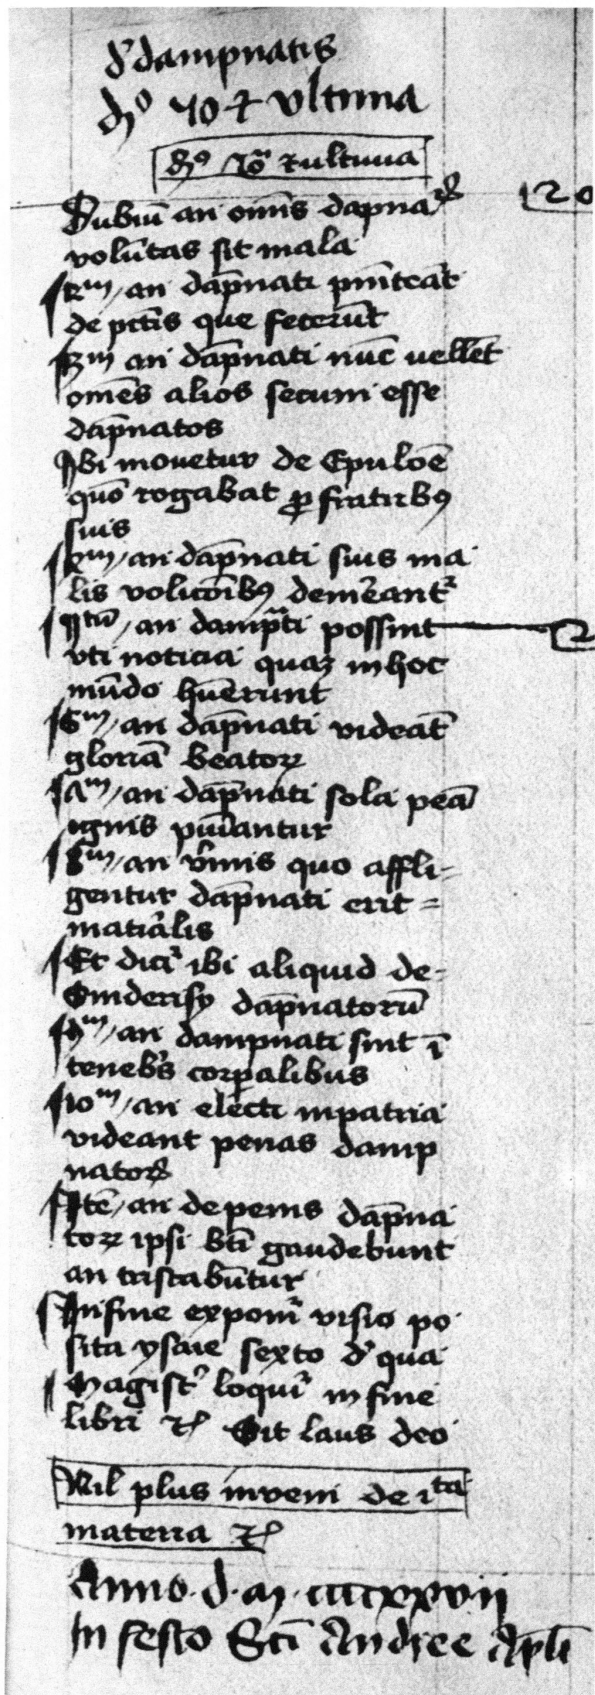 d' dampnatis
dı̄o 50 et ultima
dı̄o 50a et ultima
Dubiū an omīs dapnatorꝝ 120
volūtas sit mala
2m/ an dāpnati pniteāt
de pctīs que fecerūt
3m an dāpnati nūc vellēt
omēs alios secum esse
dāpnatos
Ibi movetur de Epuloē
quō rogabat ꝓ fratribꝰ
suis
4m/ an dāpnati suis ma
lis volicoībꝰ demereantʳ
5tū/ an dampnati possint
uti noticia quaꝫ in hoc
mūdo hūerunt
6m/ an dāpnati videāt
gloriā beatoꝝ
7m/ an dāpnati sola pēa
ignis puīantur
8m/ an v̄mis quo affli=
gentur dāpnati erit=
matiālis
Et diciʳ ibi aliquid de=
dāpnatorū
9m/ an dampnati sint ī
tenebīs corꝑalibus
10m/ an electi in patria
videant penas damp
natoꝝ
Itē/ an de penis dāpna
toꝝ ipsi bti gaudebunt
an tristabūtur
In fine exponiʳ visio po
sita ysaie sexto d' qua
Magistʳ loquiʳ in fine
libri ⁊c̄ Sit laus deo
Nil plus inveni de ista
materia ⁊c̄
Anno · d · m · ccccxxvij
In festo Sci Andree Apli